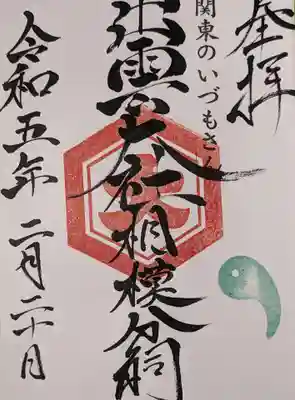 奉拝
関東のいづもさん
出雲大社相模分祠
令和五年 二月二十日